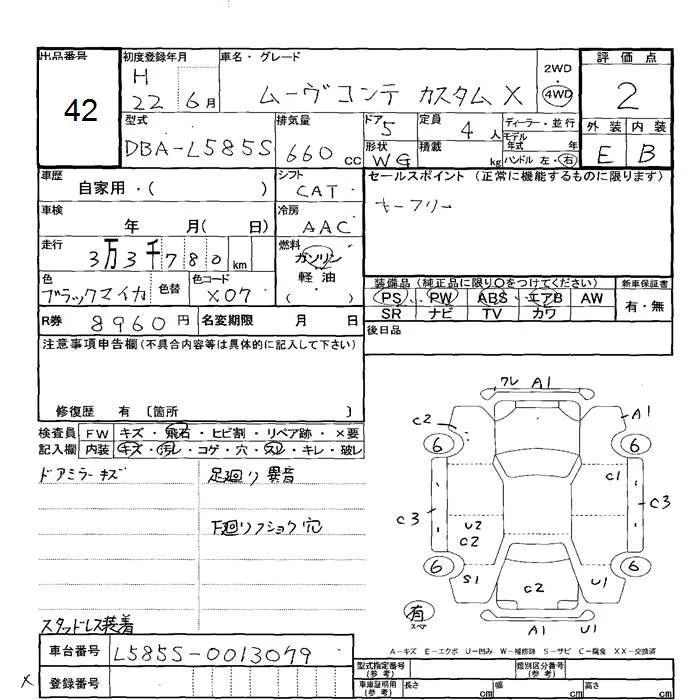 出品番号 初度登録年月 車名・グレード 評価点
42
H 22 6月 ムーヴコンテ カスタム X 2WD 4WD 2
型式 DBA-L585S 排気量 660 cc ドア 5 定員 4 人 ディーラー・並行
モデル年式 年 外装 内装
形状 WG 積載 kg ハンドル 左・右 E B
車歴 自家用・( ) シフト CAT セールスポイント (正常に機能するものに限ります)
キーフリー
車検 年 月( 日) 冷房 AAC
走行 3万3千780 km 燃料 ガソリン 軽油 ( )
色 ブラックマイカ 色替 色コード X07
装備品 (純正品に限り○をつけてください) 新車保証書
PS PW ABS エアB AW 有・無
SR ナビ TV カワ
R券 8960円 名変期限 月 日 後日品
注意事項申告欄(不具合内容等は具体的に記入して下さい)
修復歴 有 〔箇所 〕
検査員 FW キズ・飛石・ヒビ割・リペア跡・×要
記入欄 内装 キズ・汚レ・コゲ・穴・スレ・キレ・破レ
ドアミラーキズ 足廻り異音
下廻りフショク穴
スタッドレス装着
ワレ A1
C2 A1
6 6
C1
C3 C3
U2
C2
6 6
S1 C2 U1
有 スペア
A1 U1
A-キズ E-エクボ U-凹み W-補修跡 S-サビ C-腐食 XX-交換済
車台番号 L585S-0013079
型式指定番号(参考) 類別区分番号(参考)
× 登録番号
車庫証明用(参考) 長さ cm 幅 cm 高さ cm